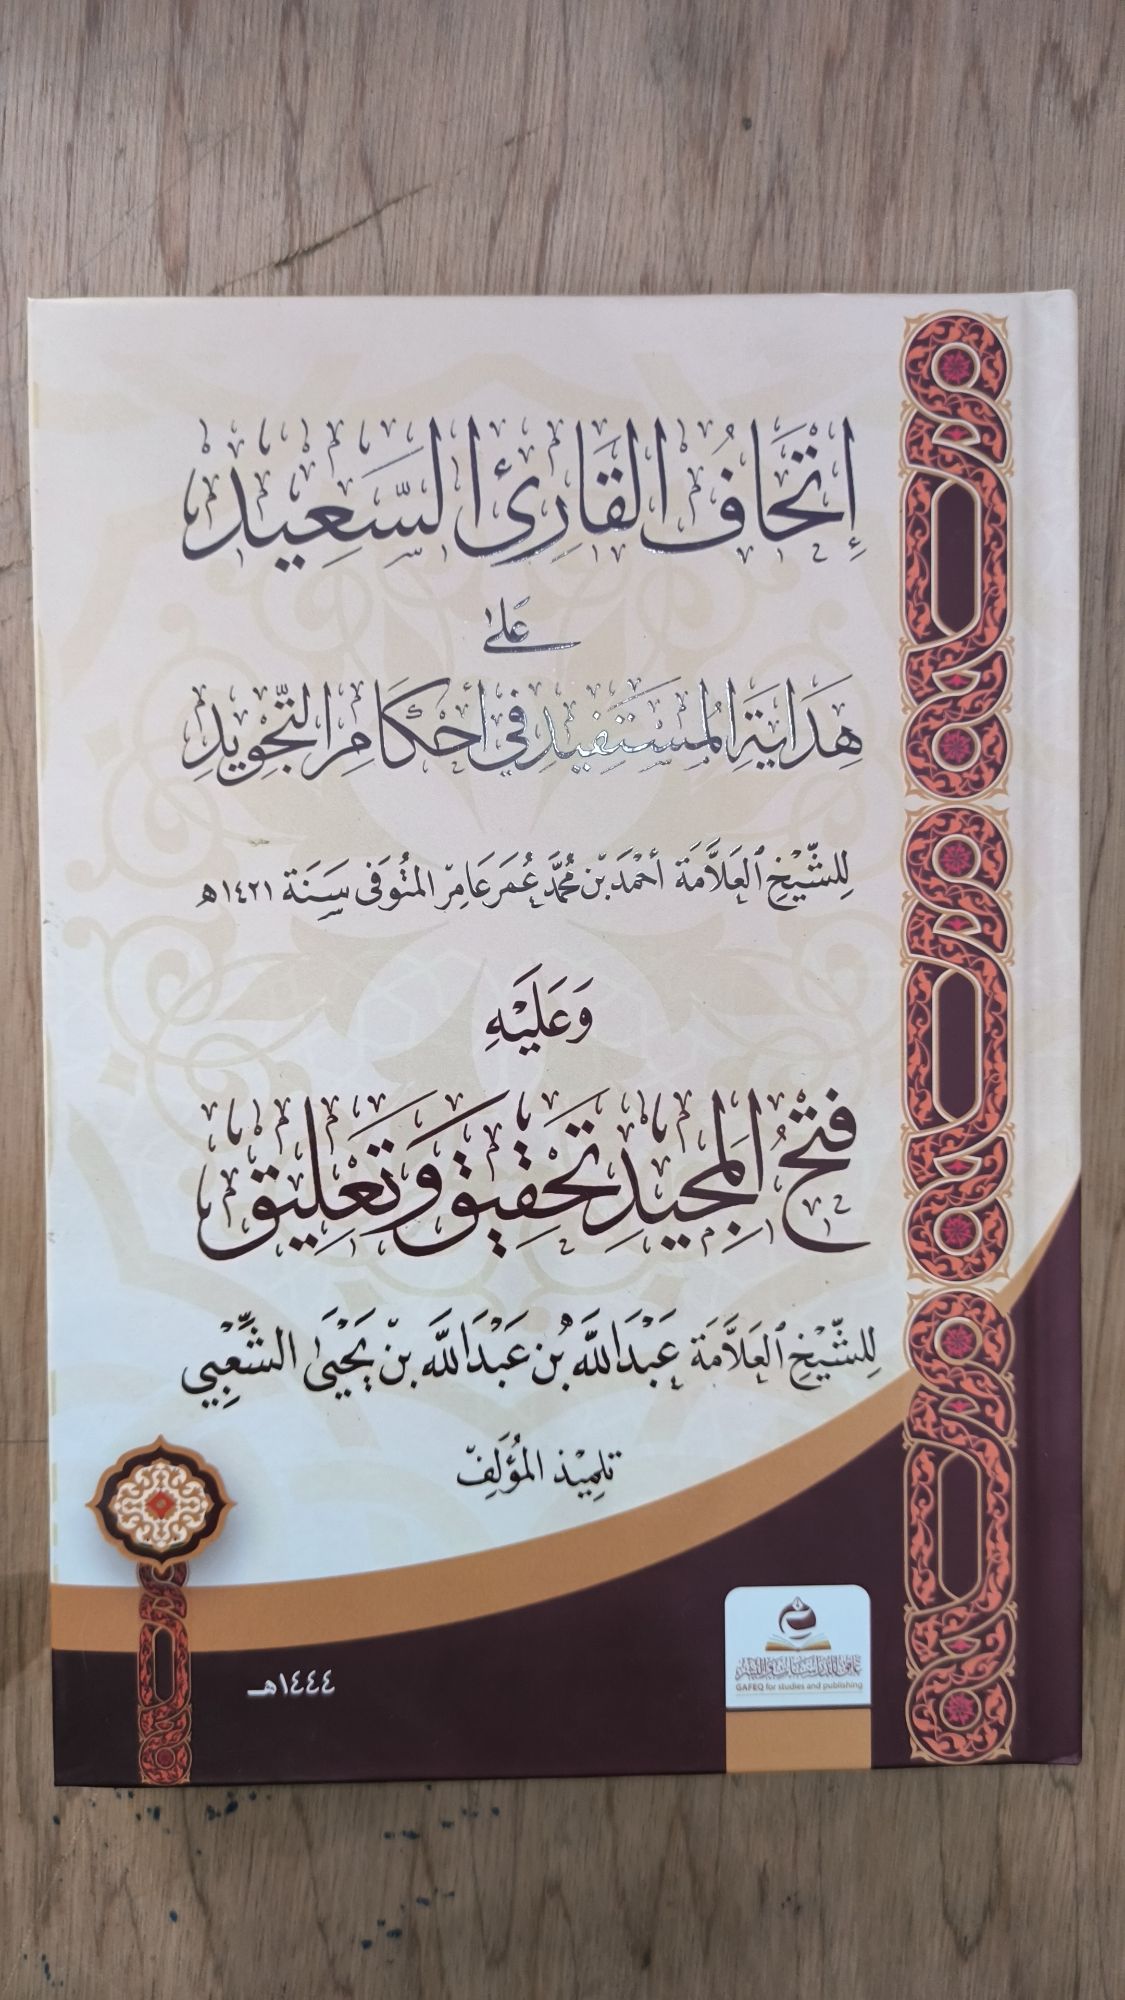 إِتْحَافُ القَارِئ السَّعِيد
عَلى
هِدَايَةِ المُسْتَفِيدِ في أَحْكَامِ التَّجْوِيدِ
لِلشَّيْخِ العَلَّامَة أَحْمَد بْن مُحَمَّد عُمَر عَامِر المتُوَفى سَنَة ١٤٢١ هـ
وَعَلَيْهِ
فَتْحُ المَجِيْدِ تَحْقِيْق وَتَعْلِيْق
لِلشَّيْخِ العَلَّامَة عَبْدَاللَّه بْن عَبْدَاللَّه بْن يَحْيَىٰ الشَّعِْبِي
تلمِيْذ المُؤَلِّف
GAFEQ for studies and publishing
١٤٤٤هـ